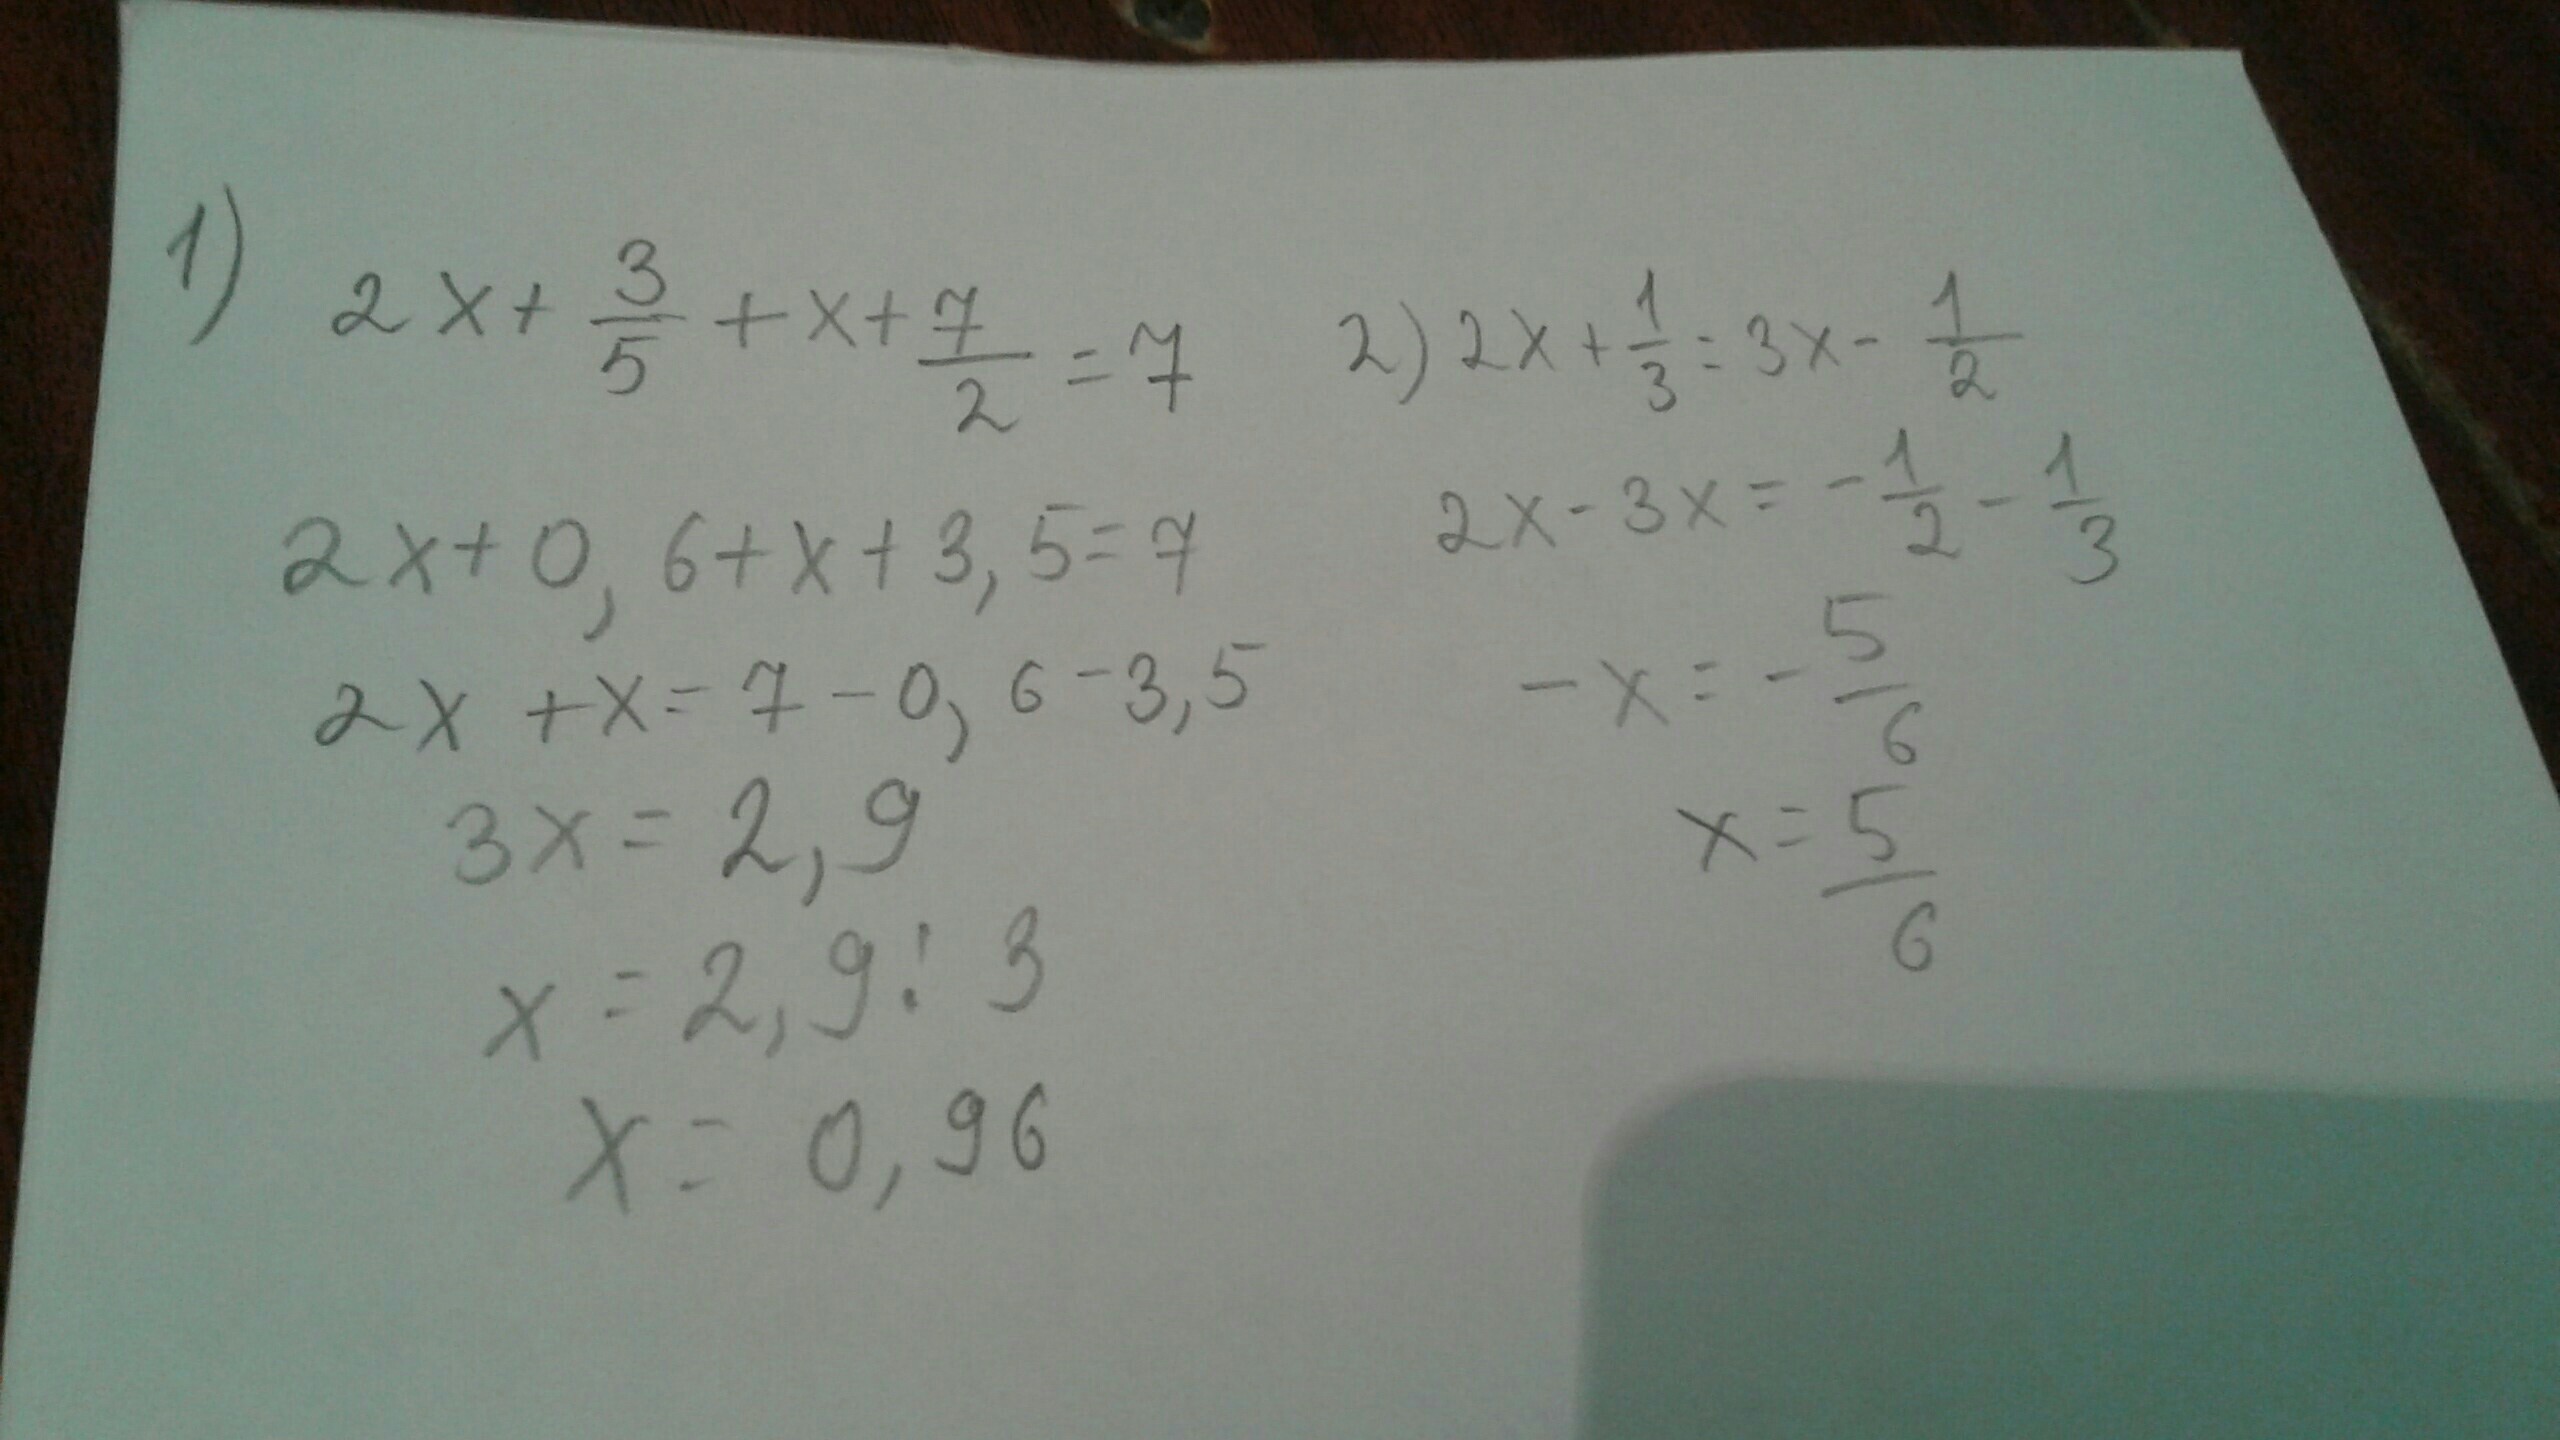 1) 2x + 3/5 + x + 7/2 = 7
2x + 0,6 + x + 3,5 = 7
2x + x = 7 - 0,6 - 3,5
3x = 2,9
x = 2,9 : 3
x = 0,96
2) 2x + 1/3 = 3x - 1/2
2x - 3x = - 1/2 - 1/3
- x = - 5/6
x = 5/6